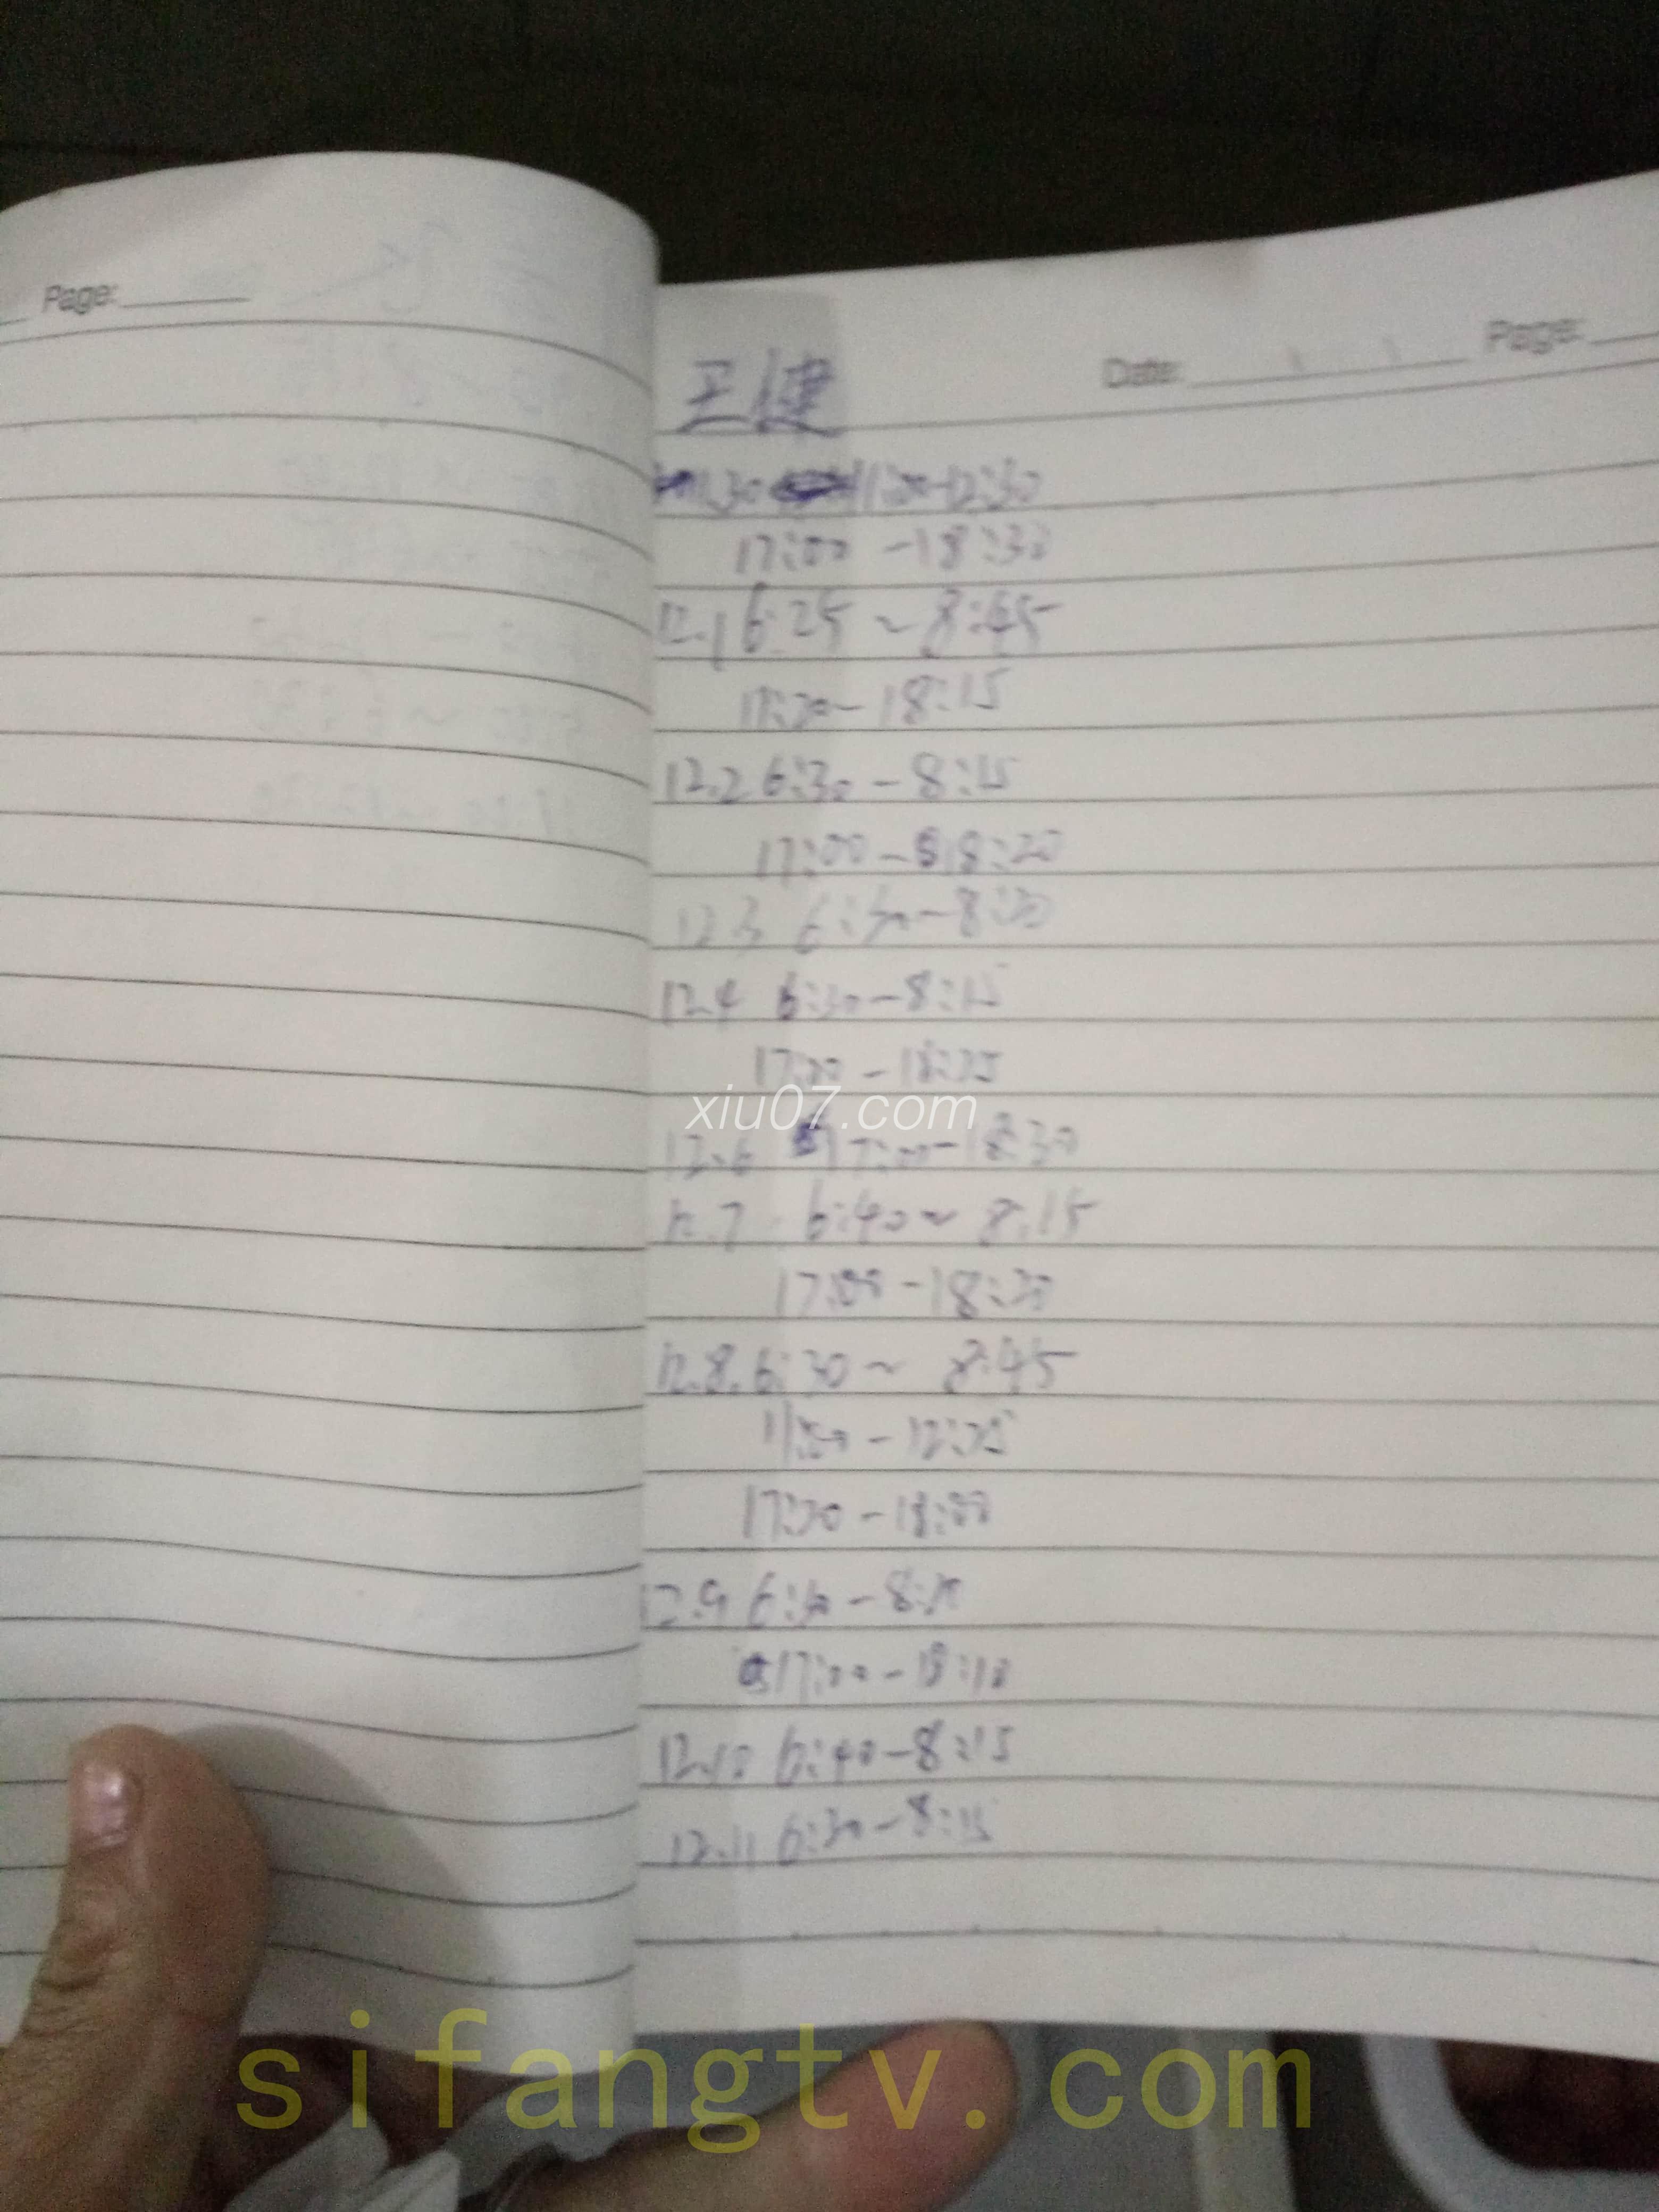 Page:
王健
Date:
Page:
11.30 11:00-12:30
17:00 -18:30
12.1 6:25 ~ 8:45
17:30- 18:15
12.2 6:30 - 8:15
17:00 - 18:20
12.3 6:30-8:30
12.4 6:30-8:15
17:00 - 18:35
xiu07.com
12.6 17:00-18:30
12.7 6:40 ~ 8:15
17:00 -18:30
12.8. 6:30 ~ 8:45
- 12:35
17:30 -18:00
12.9 6:30 -
17:00 - 18:10
12.10 6:40-8:15
12.11 6:30-8:15
sifangtv.com